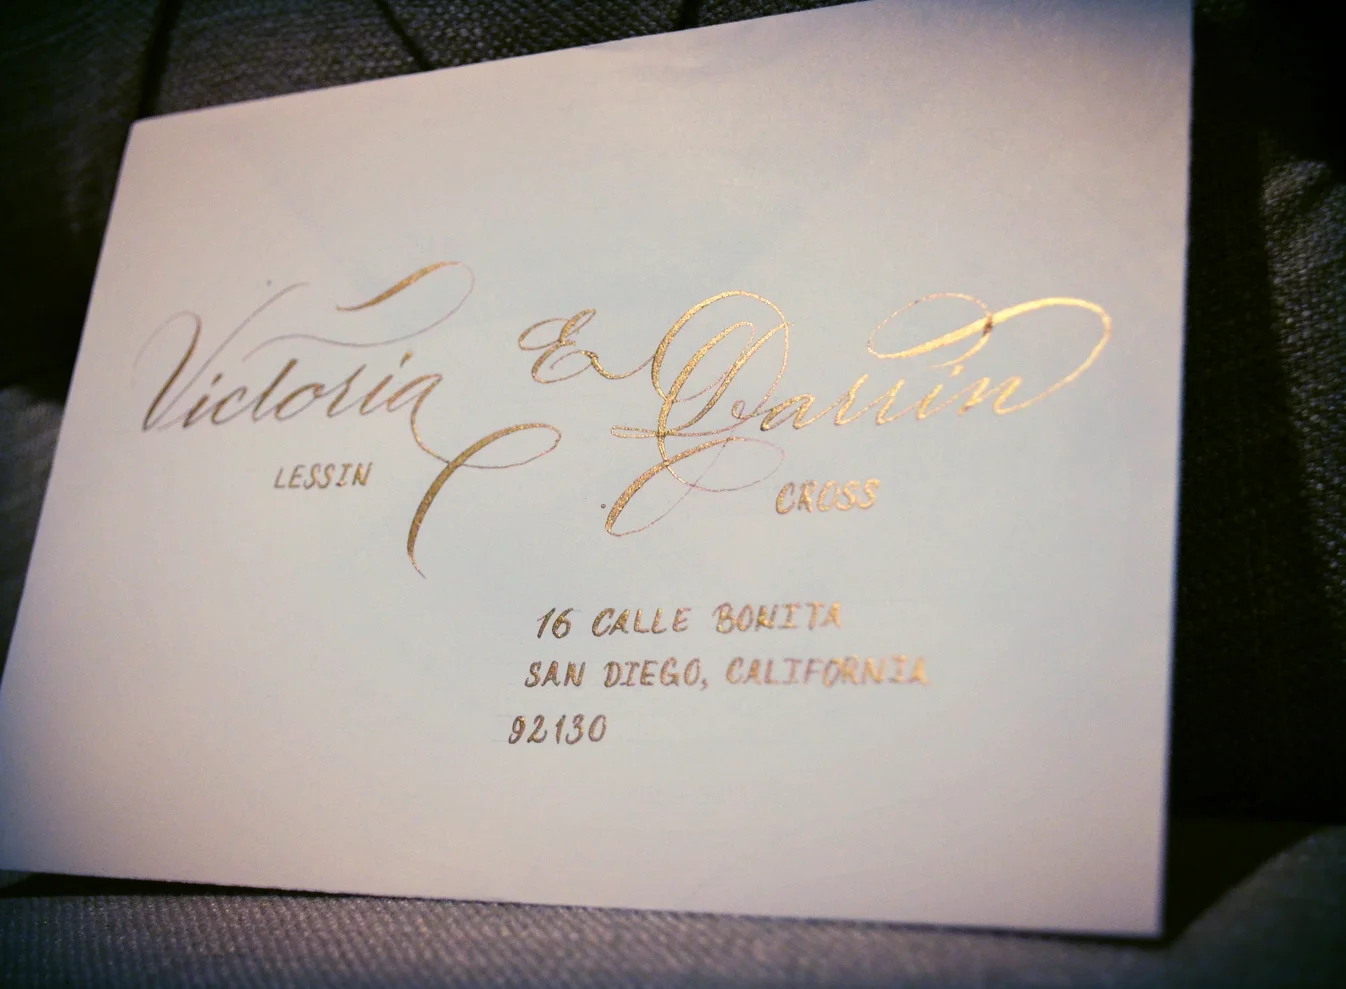 Victoria & Darrin
LESSIN CROSS
16 CALLE BONITA
SAN DIEGO, CALIFORNIA
92130